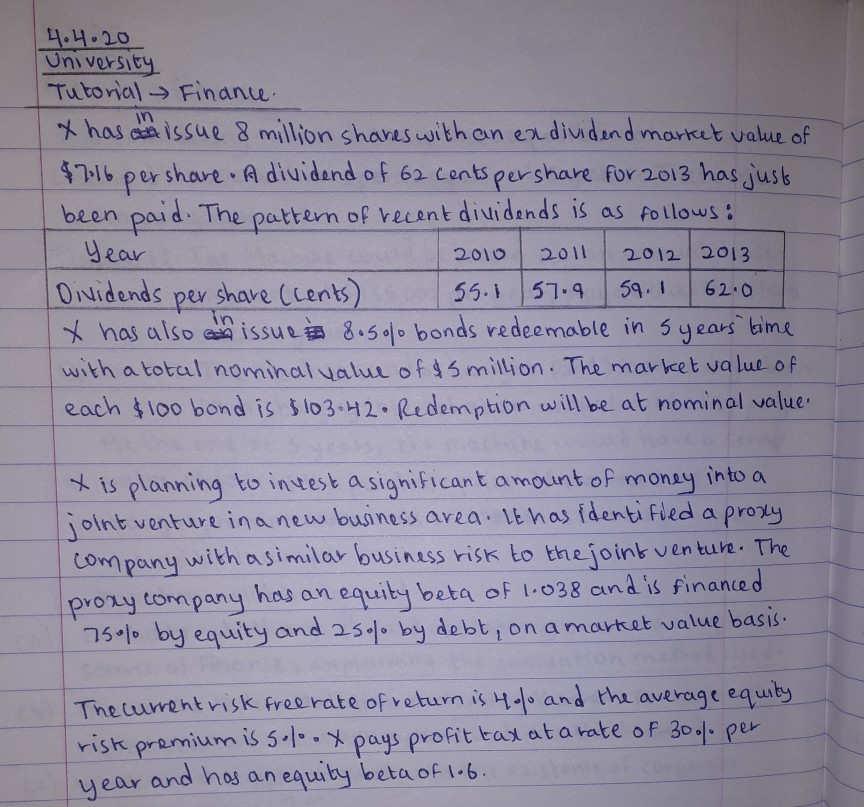 4.4.20
University
Tutorial → Finance.
X has in issue 8 million shares with an ex dividend market value of
$7.16 per share. A dividend of 62 cents per share for 2013 has just
been paid. The pattern of recent dividends is as follows:
Year 2010 2011 2012 2013
Dividends per share (cents) 55.1 57.9 59.1 62.0
X has also in issue 8.5% bonds redeemable in 5 years time
with a total nominal value of $5 million. The market value of
each $100 bond is $103.42. Redemption will be at nominal value.
X is planning to invest a significant amount of money into a
joint venture in a new business area. It has identified a proxy
company with a similar business risk to the joint venture. The
proxy company has an equity beta of 1.038 and is financed
75% by equity and 25% by debt, on a market value basis.
The current risk free rate of return is 4% and the average equity
risk premium is 5%. X pays profit tax at a rate of 30% per
year and has an equity beta of 1.6.